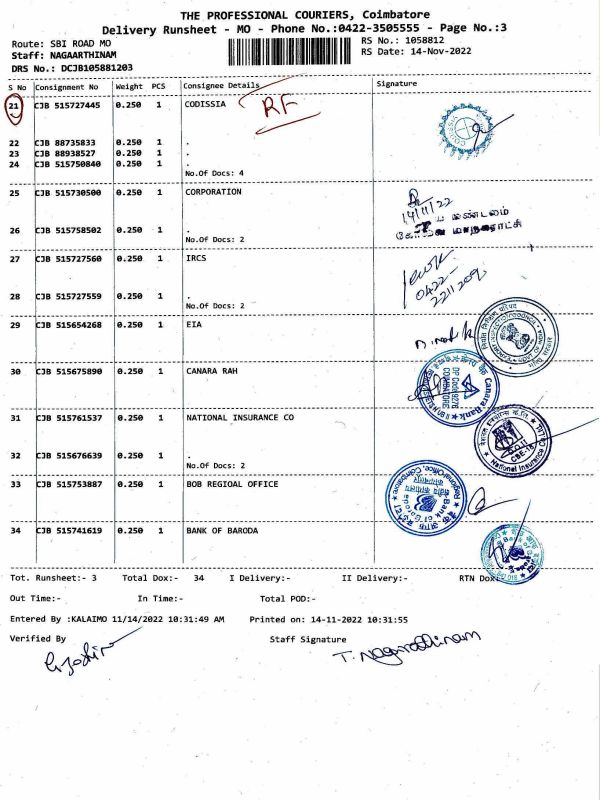 THE PROFESSIONAL COURIERS, Coimbatore
Delivery Runsheet - MO - Phone No.:0422-3505555 - Page No.:3
Route: SBI ROAD MO RS No.: 1058812
Staff: NAGAARTHINAM RS Date: 14-Nov-2022
DRS No.: DCJB105881203
S No Consignment No Weight PCS Consignee Details Signature
21 CJB 515727445 0.250 1 CODISSIA RF
22 CJB 88735833 0.250 1 .
23 CJB 88938527 0.250 1 .
24 CJB 515750840 0.250 1 .
No.Of Docs: 4
25 CJB 515730500 0.250 1 CORPORATION
14/11/22
26 CJB 515758502 0.250 1 .
No.Of Docs: 2
27 CJB 515727560 0.250 1 IRCS
0422-
28 CJB 515727559 0.250 1 .
No.Of Docs: 2
29 CJB 515654268 0.250 1 EIA
30 CJB 515675890 0.250 1 CANARA RAH
Canara Bank
COIMBATORE
31 CJB 515761537 0.250 1 NATIONAL INSURANCE CO
National Insurance Co
32 CJB 515676639 0.250 1 .
No.Of Docs: 2
33 CJB 515753887 0.250 1 BOB REGIOAL OFFICE
Regional Office, Coimbatore
Bank of Baroda
34 CJB 515741619 0.250 1 BANK OF BARODA
Tot. Runsheet:- 3 Total Dox:- 34 I Delivery:- II Delivery:- RTN Dox:
Out Time:- In Time:- Total POD:-
Entered By :KALAIMO 11/14/2022 10:31:49 AM Printed on: 14-11-2022 10:31:55
Verified By Staff Signature
T. Nagarathinam